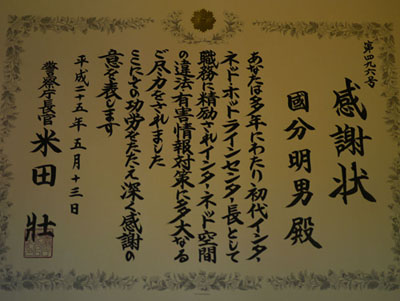 第四九六号
感謝状
國分明男殿
あなたは多年にわたり初代インター
ネットホットラインセンター長として
職務に精励されインターネット空間
の違法有害情報対策に多大なる
ご尽力をされました
ここにその功労をたたえ深く感謝の
意を表します
平成二十五年五月十三日
警察庁長官 米田壯